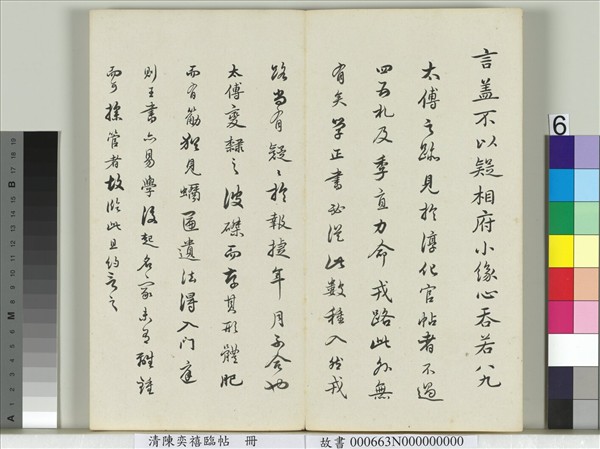 言蓋不以疑相府小緣心吞若八九
太傅之跡見於淳化官帖者不過
四五札及季直力命戎路此外無
有矣學正書必從此數種入然戎
路尚有疑〻於報捷年月不合也
太傅變隸之波磔而存其形體肥
而有筋猶見蠣匾遺法得入門庭
則王書亦易學後起名家未有離鍾
而可操管者故臨此且約言之
清陳奕禧臨帖 冊
故書 000663N000000000
6